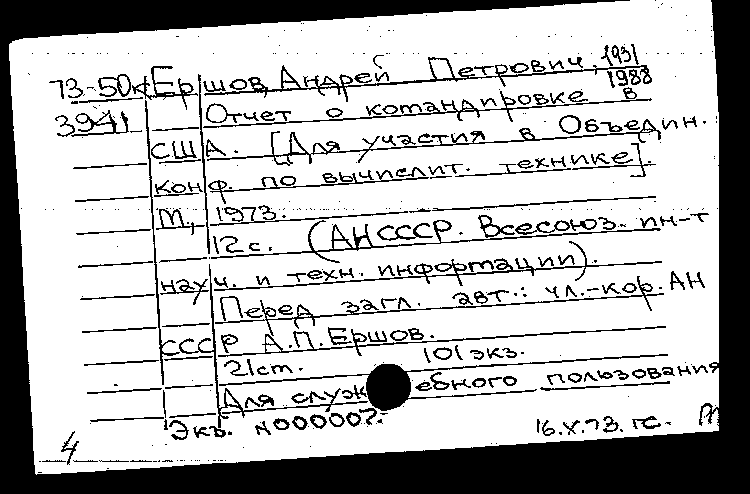 73-50к Ершов, Андрей Петрович, 1931
1988
3941 Отчет о командировке в
США. [Для участия в Объедин.
конф. по вычислит. технике].
М., 1973.
12 с. (АН СССР. Всесоюз. ин-т
науч. и техн. информации).
Перед загл. авт.: чл.-кор. АН
СССР А.П. Ершов.
21 см. 101 экз.
Для служебного пользования
Экз. №000007.
16.X.73. гс.
4